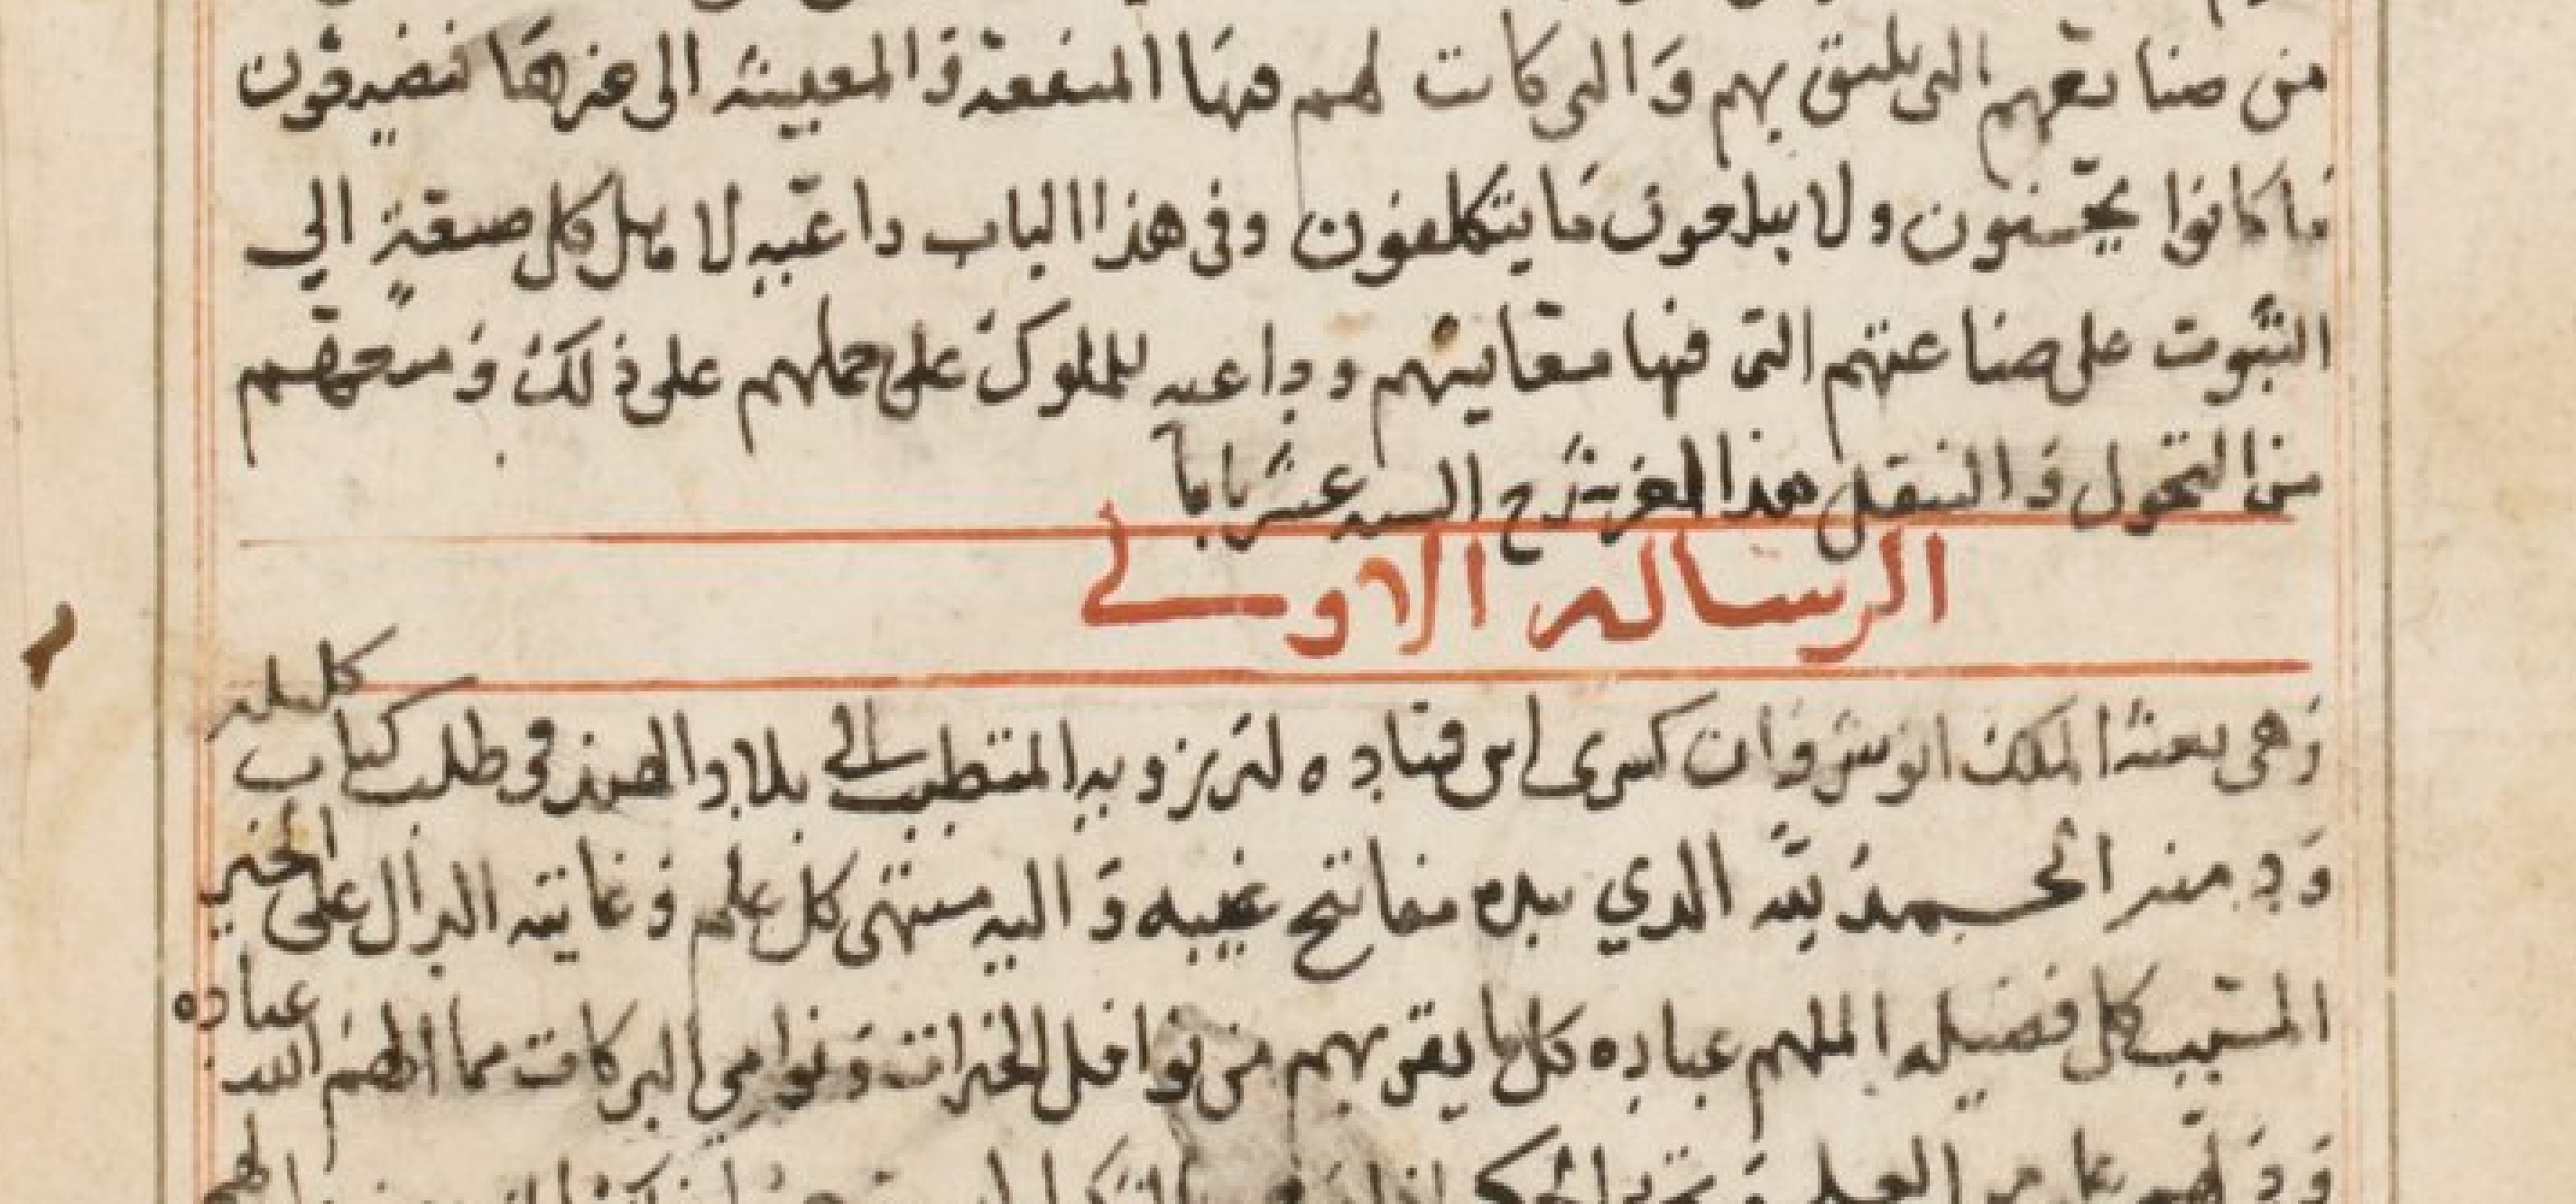 من صنايعهم التي يليق بهم والبركات لهم فيها المنفعة والمعيشة الى غيرها فيضيقون
ما كانوا يحسنون ولا يبلغون ما يتكلفون وفي هذا الباب داعية لاهل كل صنعة الي
الثبوت على صناعتهم التي فيها معايشهم وداعيه للملوك على حملهم على ذلك ومنعهم
من التحول والتنقل هذا الستة عشر بابا
الرسالة الاولى
وهي بعثة الملك انوشروان كسرى ابن قباد لبرزويه المتطبب الى بلاد الهند في طلب كتاب كليله
ودمنه الحمد لله الذي بيده مفاتح غيبه واليه منتهى كل علم وغايته الدال على الخير
المسبب كل فضيله الملهم عباده كل ما يقربهم من نوافل الخيرات ونوامي البركات مما الهم الله عباده